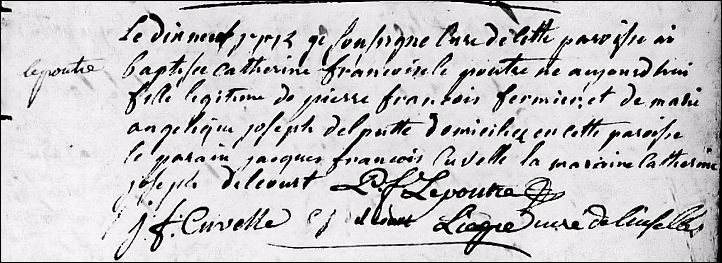 Le dix neuf je soussigne Cure de cette paroisse ai
lepoutre
baptisee Catherine francoise le poutre ne aujourdhui
fille legitime de pierre francois fermier et de marie
angelique joseph delputte domiciliez en cette paroisse
le parain jacques francois Cuvelle la maraine Catherine
joseph delcourt P. f Lepoutre
j. f. Cuvelle C j Liegre curé de linselles